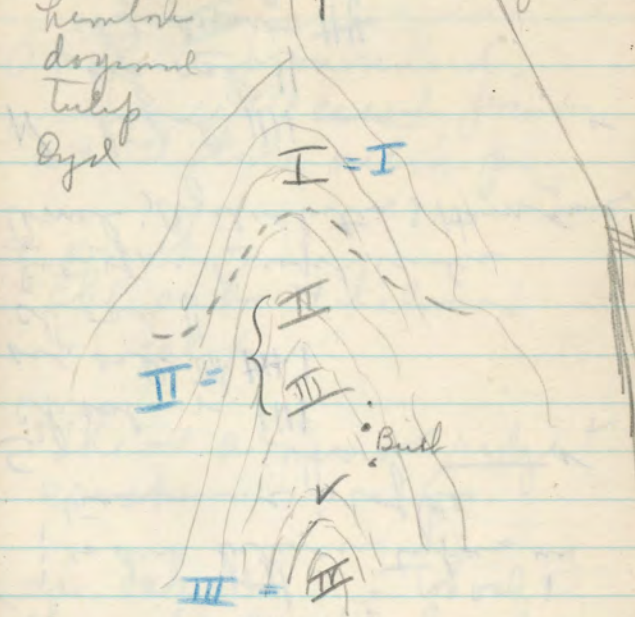 hemlock
dogwood
Tulip
I = I
II
II =
III
III = IV